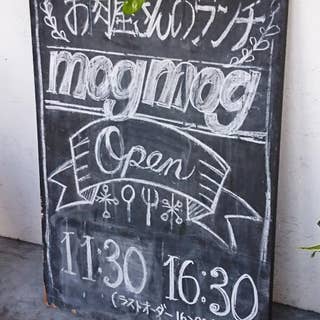 お肉屋さんのランチ
mogmog
Open
11:30 16:30
(ラストオーダー16: